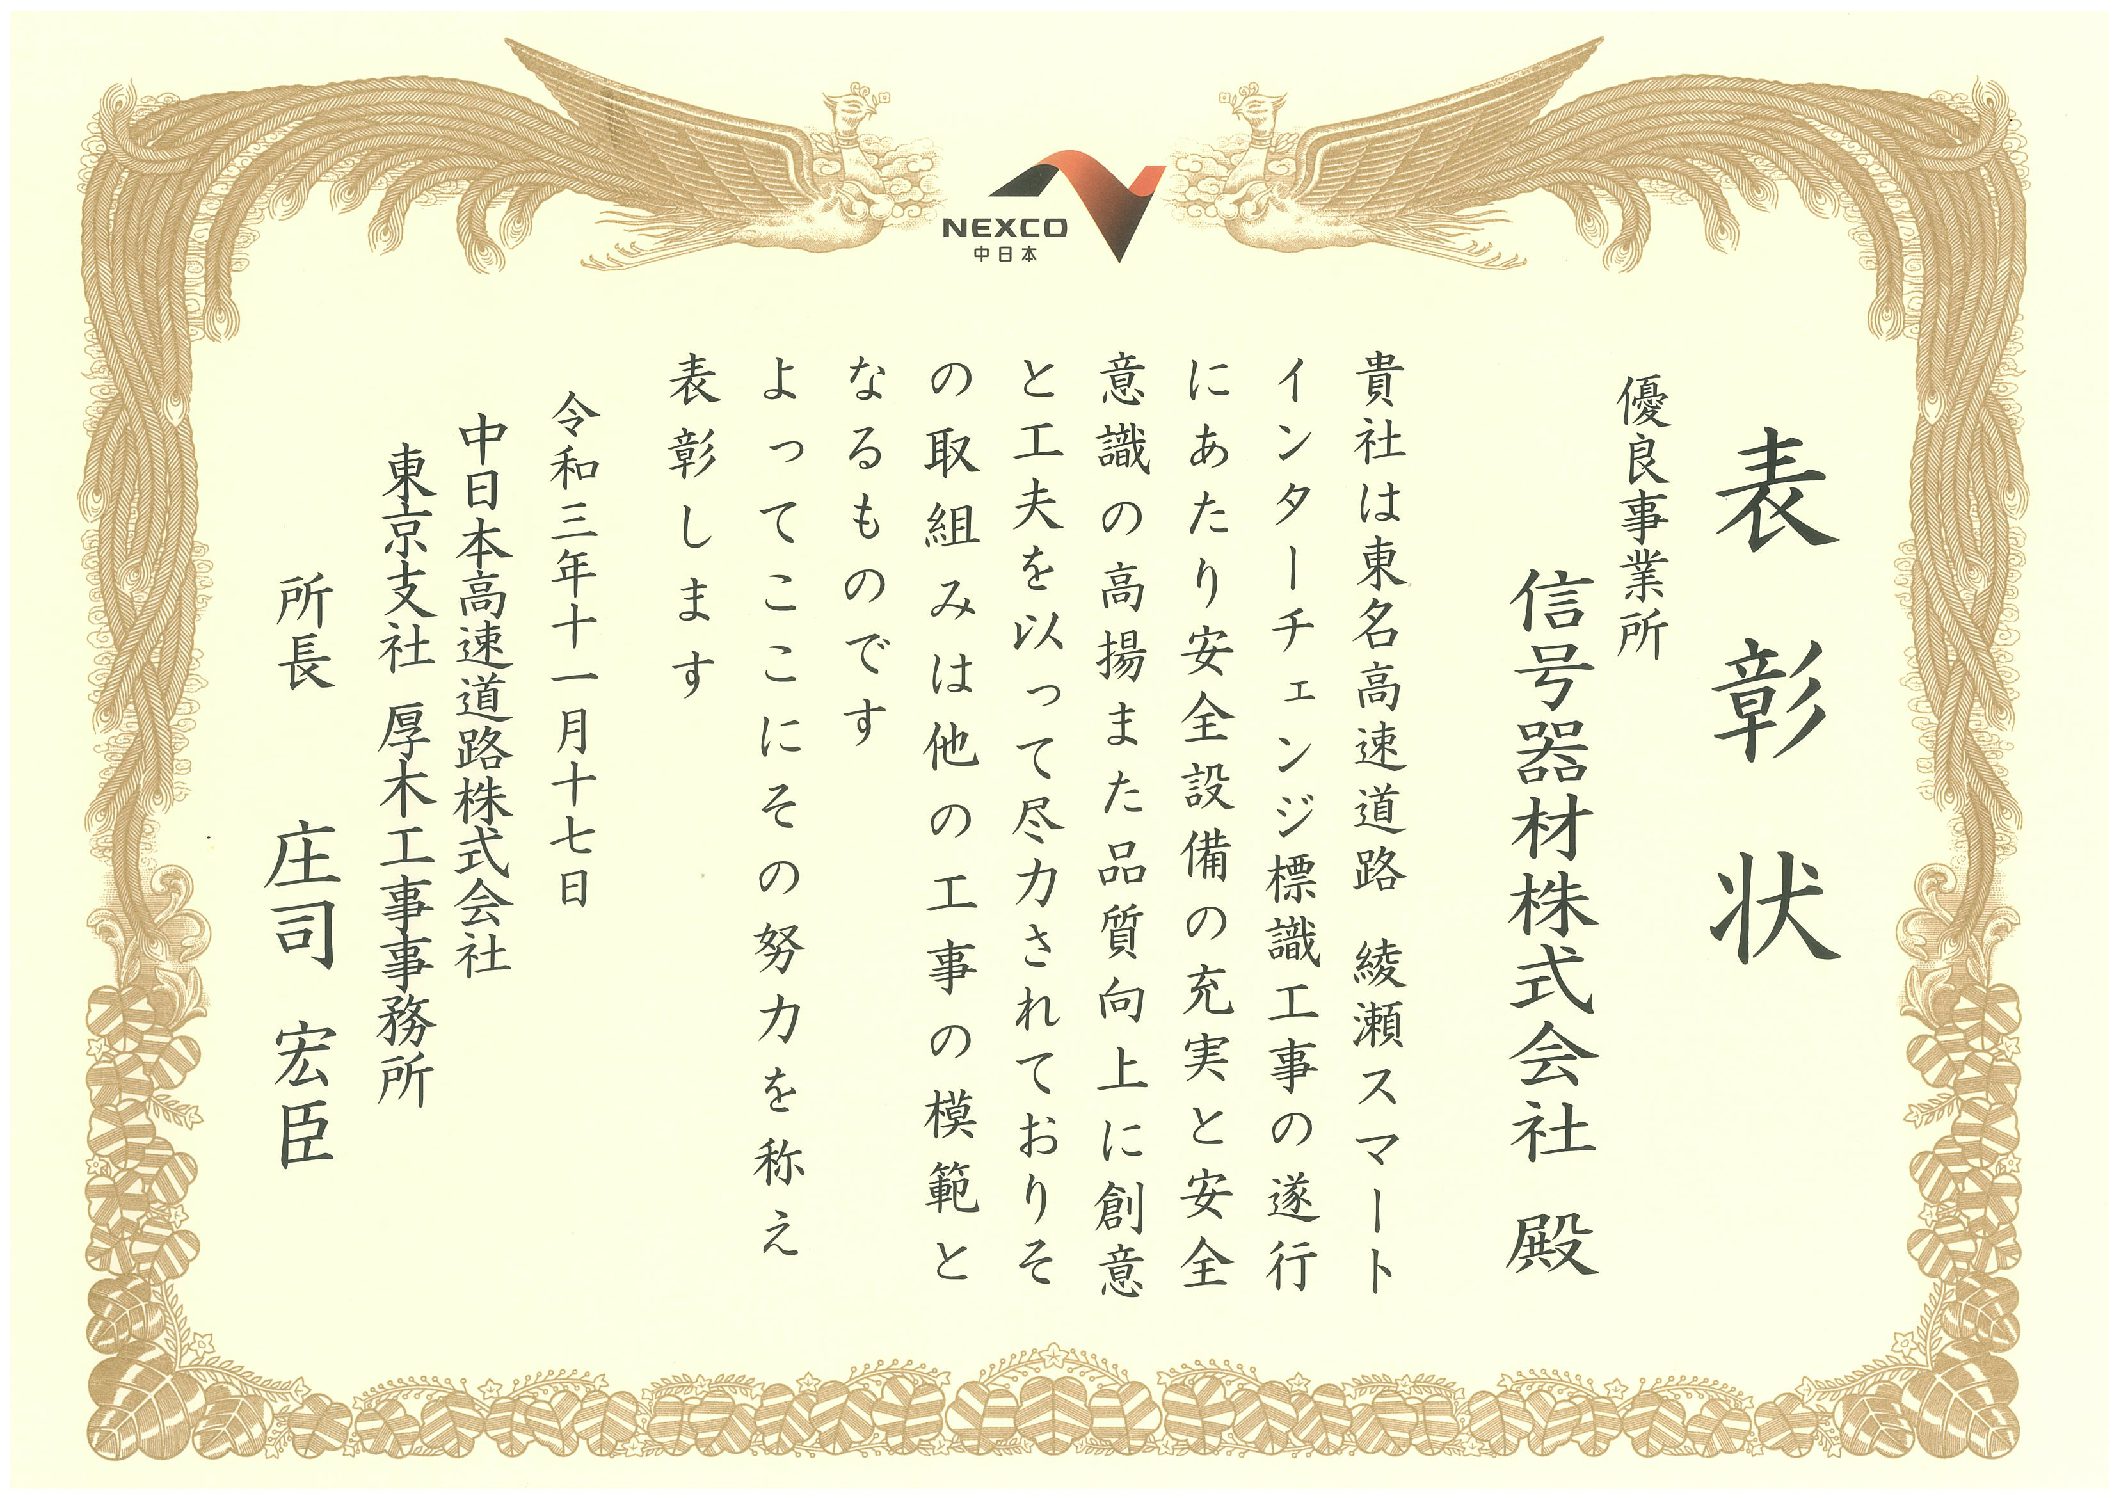 NEXCO
中日本
表彰状
優良事業所
信号器材株式会社 殿
貴社は東名高速道路 綾瀬スマート
インターチェンジ標識工事の遂行
にあたり安全設備の充実と安全
意識の高揚また品質向上に創意
と工夫を以って尽力されておりそ
の取組みは他の工事の模範と
なるものです
よってここにその努力を称え
表彰します
令和三年十一月十七日
中日本高速道路株式会社
東京支社 厚木工事事務所
所長 庄司 宏臣